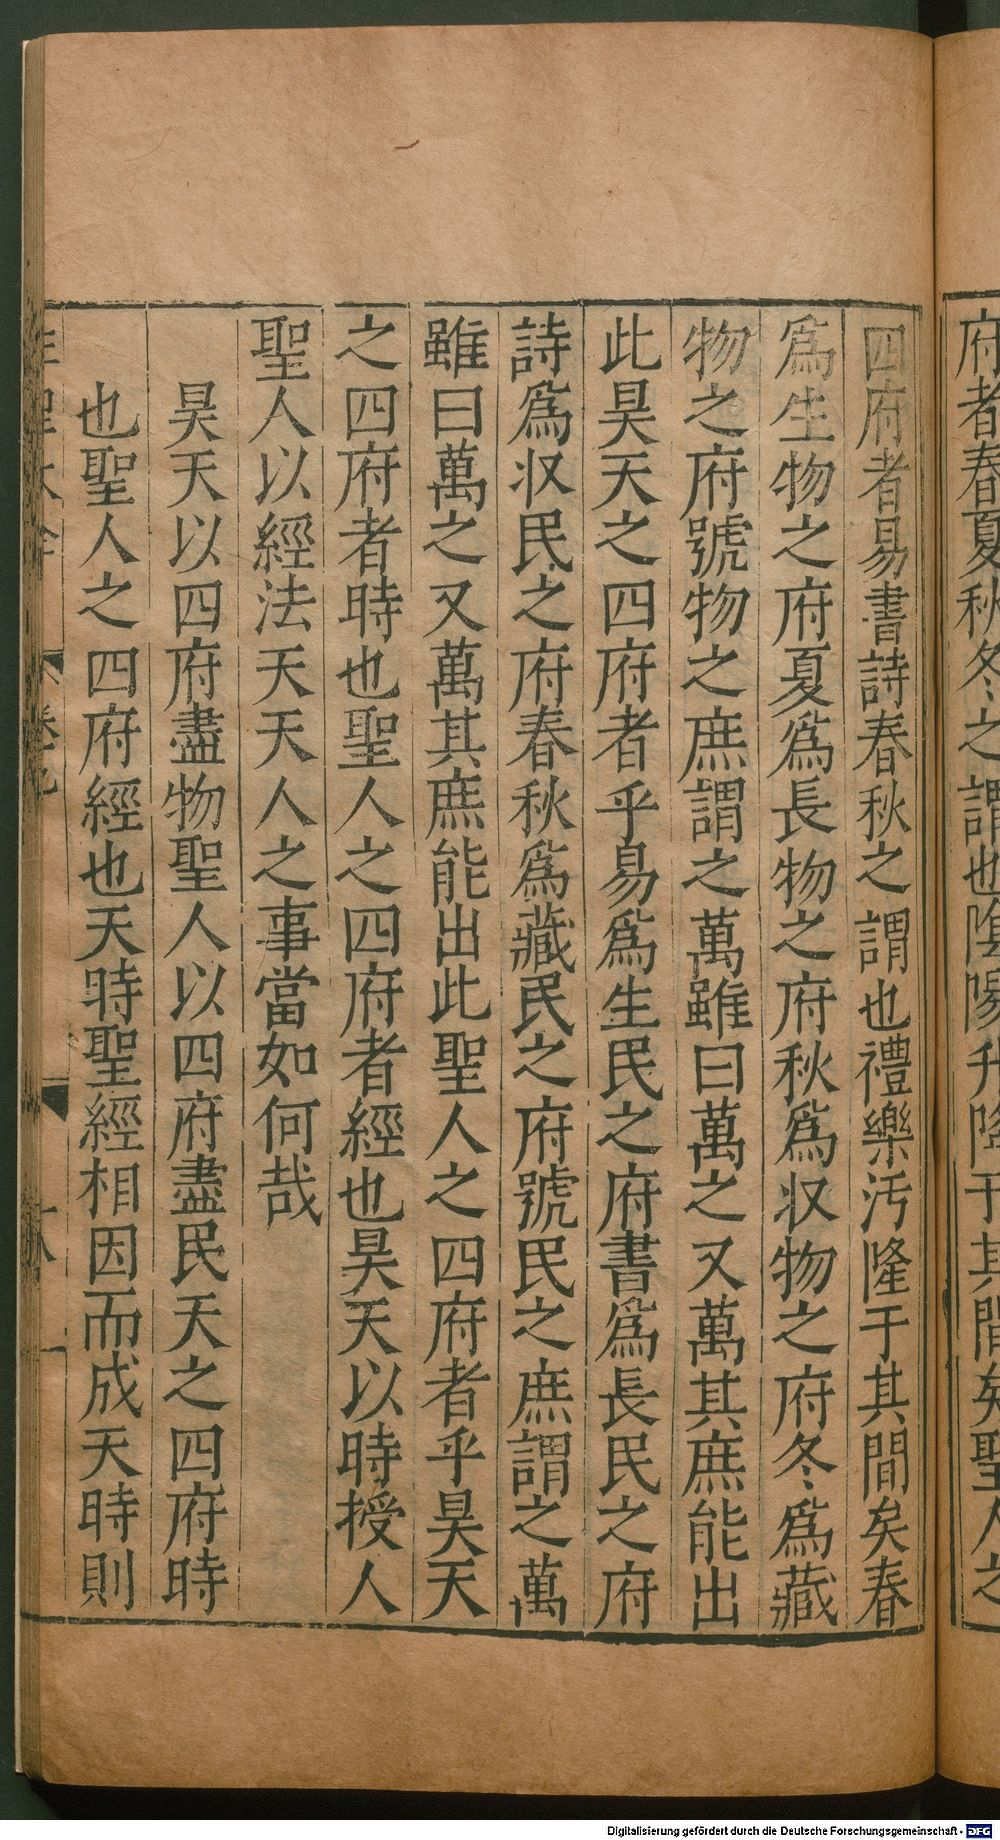 府者春夏秋冬之謂也陰陽升降于其間矣聖人之
四府者易書詩春秋之謂也禮樂汚隆于其間矣春
爲生物之府夏爲長物之府秋爲收物之府冬爲藏
物之府號物之庶謂之萬雖曰萬之又萬其庶能出
此昊天之四府者乎易爲生民之府書爲長民之府
詩爲收民之府春秋爲藏民之府號民之庶謂之萬
雖曰萬之又萬其庶能出此聖人之四府者乎昊天
之四府者時也聖人之四府者經也昊天以時授人
聖人以經法天天人之事當如何哉
昊天以四府盡物聖人以四府盡民天之四府時
也聖人之四府經也天時聖經相因而成天時則
Digitalisierung gefördert durch die Deutsche Forschungsgemeinschaft - DFG